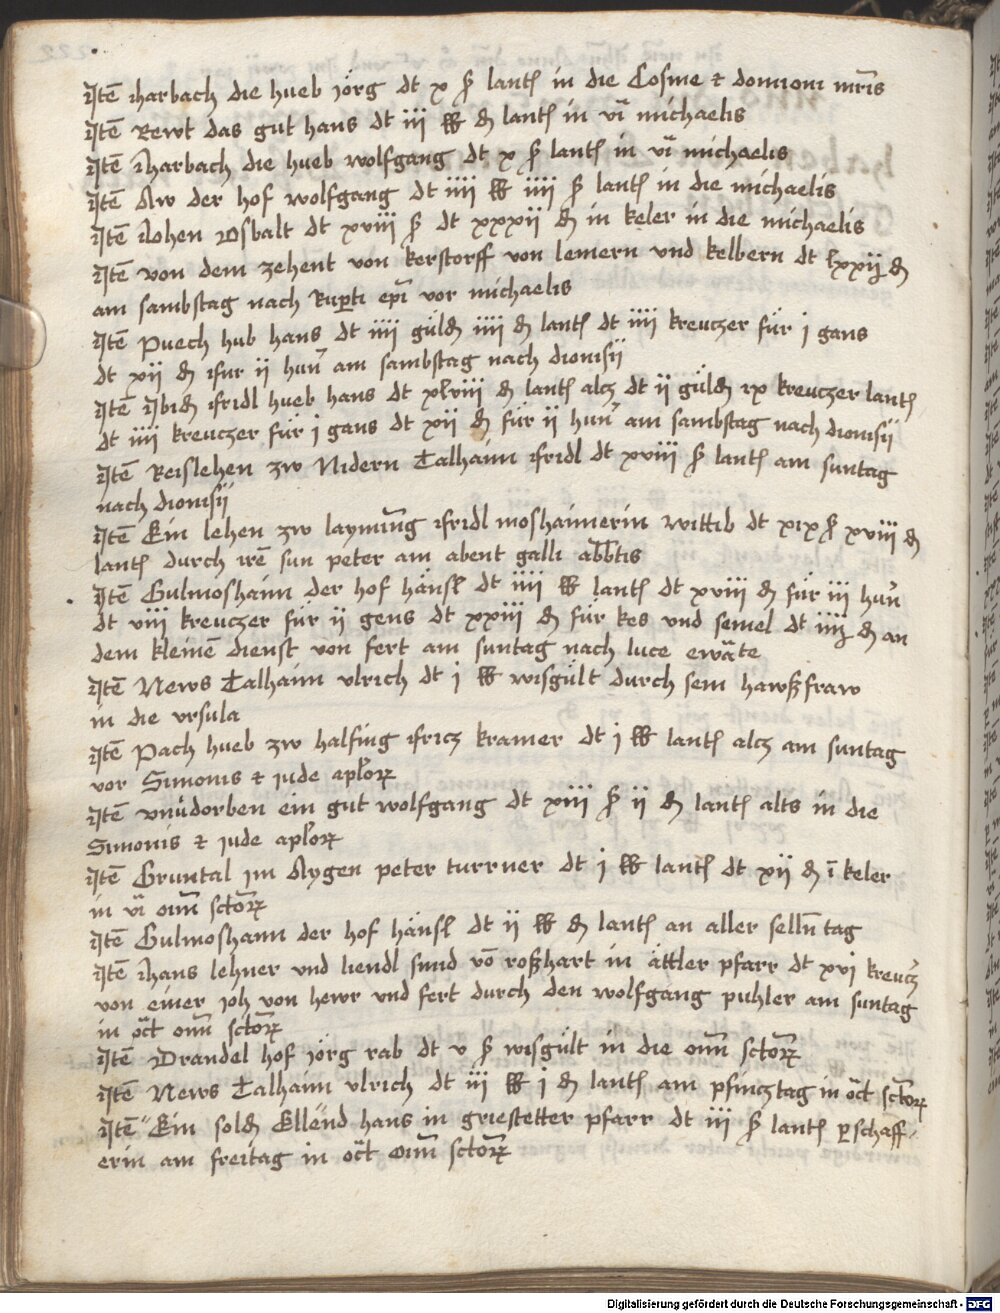 Itē Harbach die hueb Jörg dt x ß lantß in die Cosme et domiani mr̄is
Itē Rewt das gut hans dt iij lb ₰ lantß in vi͂ michaelis
Itē Harbach die hueb wolfgang dt x ß lantß in vi͂ michaelis
Itē Aw der hof wolfgang dt iiij lb iiij ß lantß in die michaelis
Itē Lohen Osbalt dt xviii ß dt xxxij ₰ in keler in die michaelis
Itē von dem zehent von kerstorff von lemern vnd kelbern dt lxxij ₰
am sambstag nach Ruꝑti ep̄i vor michaelis
Itē Puech hub hans dt iiij güld iiij ₰ lantß dt iiij kreuczer für j gans
dt xij ₰ fur ij hun̄ am sambstag nach dionisij
Itē Ibid fridl hueb hans dt xlviii ₰ lantß alcz dt ij güld ix kreuczer lantß
dt iiij kreuczer für j gans dt xij ₰ für ij hun̄ am sambstag nach dionisij
Itē Reislehen zw Nidern Talhaim fridl dt xviii ß lantß am suntag
nach dionisij
Itē Ein lehen zw laymi͂ng fridl moshaimerin wittib dt xix ß xviii ₰
lantß durch irē sun peter am abent galli abb̄tis
Itē Gulmoshaim der hof hänsl dt iiij lb lantß dt xviii ₰ für iii hun̄
dt viii kreuczer für ij gens dt xxiii ₰ für kes vnd semel dt iiij ₰ an
dem kleinē dienst von fert am suntag nach luce ewāte
Itē News Talhaim vlrich dt j lb wisgült durch sein hawßfraw
in die vrsula
Itē Pach hueb zw halfing fricz kramer dt j lb lantß alcz am suntag
vor Simonis et jude apl̄oꝝ
Itē vnu͂dorben ein gut wolfgang dt xiii ß ij ₰ lantß alts in die
Simonis et jude apl̄oꝝ
Itē Gruntal im Aygen peter turrner dt j lb lantß dt xij ₰ ī keler
in vi͂ om̄ sctōꝝ
Itē Gulmoshaim der hof hänsl dt ij lb ₰ lantß an aller sellñ tag
Itē Hans lehner vnd liendl sund vō roßhart in ättler pfarr dt xvj kreucz̄
von einer joh von hewr vnd fert durch den wolfgang puhler am suntag
in oc̄t om̄ sctōꝝ
Itē Drandel hof jörg rab dt v ß wisgült in die om̄ sctōꝝ
Itē News Talhaim vlrich dt iij lb j ₰ lantß am pfincztag in oc̄t sctōꝝ
Itē Ein sold Ellend hans in griestetter pfarr dt iii ß lantß ꝑ schaff-
erin am freitag in oc̄t om̄ sctōꝝ
Digitalisierung gefördert durch die Deutsche Forschungsgemeinschaft - DFG